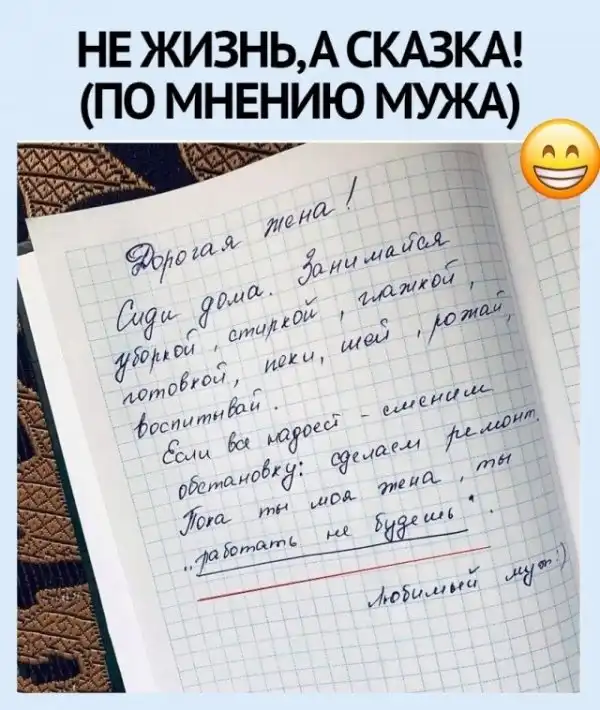 НЕ ЖИЗНЬ,А СКАЗКА!
(ПО МНЕНИЮ МУЖА)
Дорогая жена!
Сиди дома. Занимайся
уборкой, стиркой, глажкой,
готовкой, пеки, шей, рожай,
воспитывай.
Если всё надоест - сменим
обстановку: сделаем ремонт.
Пока ты моя жена, ты
"работать не будешь".
Любимый муж:)